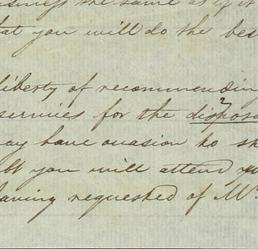 the same as if it
that you will do the bes
liberty of recommendin
services for the disposa
may have occasion to sh
you will attend
having requested of Mr